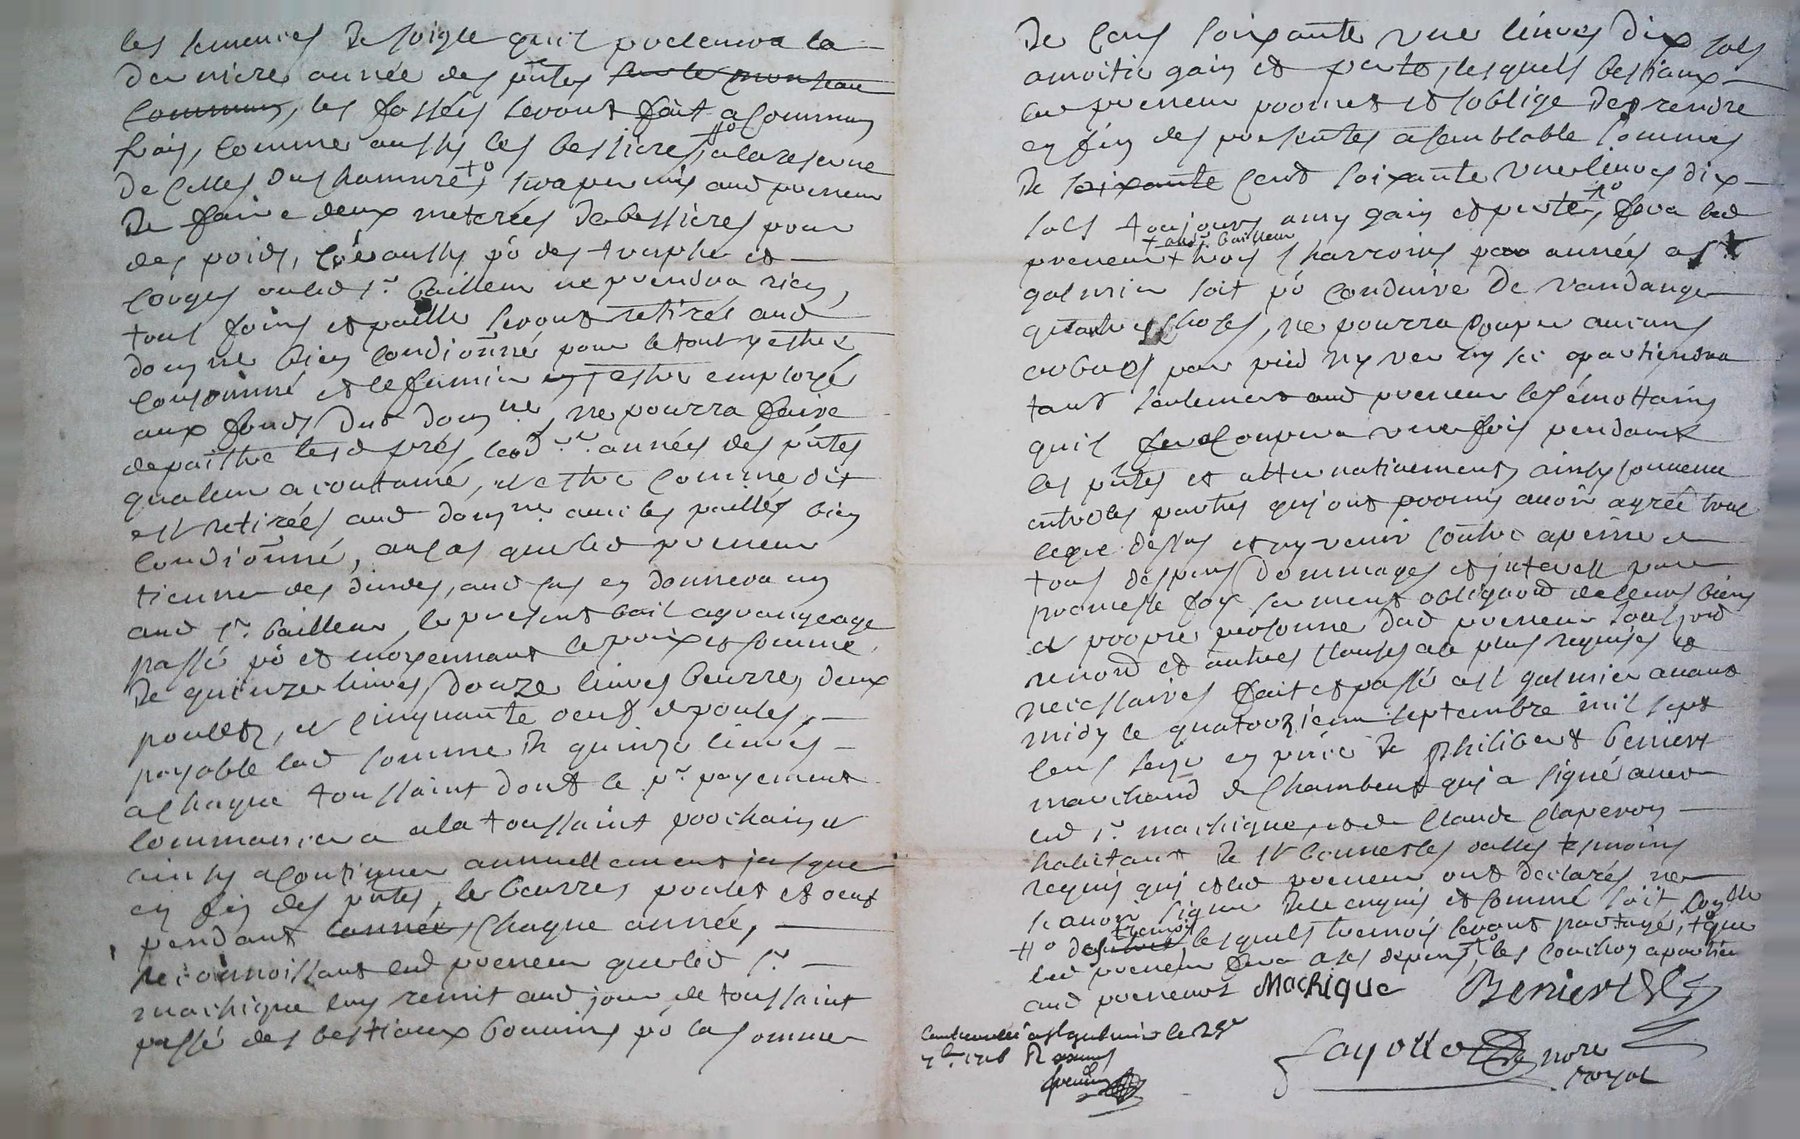 les semences de soigle quil prelevera la
derniere année des pntes sur le monceau
commung, les fossés seront fait a commung
frais, comme aussy les bessieres, a la reserve
de celles du chamure, sera permis aud preneur
de faire deux meterées de bessieres pour
des pois, aussy po des truphe et
courges ou led sr. bailleur ne prendra rien,
tous foins et paille seront retirés aud
domne bien condionné pour le tout y estre
consommé et le fumier y estre employé
aux fonds dud domne, ne pourra faire
depaistre lesd prés, lad année des pntes
qua leur acoutumé, et estre comme dit
est retirées aud domne avec les pailles bien
condionné, au cas que led preneur
tienne des dindes, aud cas en donnera un
aud sr. bailleur, le present bail a grangeage
passé po et moyennant le prix et somme
de quinze livres, douze livres beurre, deux
poulets, et cinquante oeufs de poules,
payable lad somme de quinze livres
a chaque toussaint dont le pr payement
commancera a la toussaint prochaine et
ainsy a continuer annuellement jusque
en fin des pntes, le beurre, poulet et oeuf
pendant lannée, chaque année,
reconnoissant led preneur que led sr
machique luy remit aud jour de toussaint
passé des bestiaux bovins po la somme
de cent soixante une livres dix sols
a moitié gain et perte, lesquels bestiaux
led preneur promet et soblige de rendre
en fin des presentes a semblable somme
de soixante cent soixante une livres dix
sols toujours a my gain et perte, fera led
preneur aud sr. bailleur trois charrois par années a st
galmier soit po conduire de vandange
autres choses, ne pourra couper aucuns
arbres par pied ny ver ny sec apartiendra
tant seulement aud preneur les émottains
quil coupera une fois pendant
les pntes et alternativement, ainsy convenu
entre les parties qui ont promis avoir agréé tout
ce que dessus et ny venir contre a peine de
tous despens dommages et interest par
promesse foy serment obligaon de leurs biens
et propre personne dud preneur
renon et autres clauses a ce plus requises et
necessaires fait et passé a st galmier avant
midy le quatorzieme septembre mil sept
cens seize en pnce de philibert beniere
marchand de chambeuf qui a signé avec
led sr. machique, et de claude claperon
habitant de st bonnet les oulles tesmoins
requis qui et led preneur ont declarés ne
scavoir signer de ce enquis et sommé soit
lesquels tremois seront partagé, que
led preneur fera a ses depens, les couchon apartien
aud preneur
Machique Benier
controllé a st galmier le 25e
7bre 1716 R
fayolle nore
royal